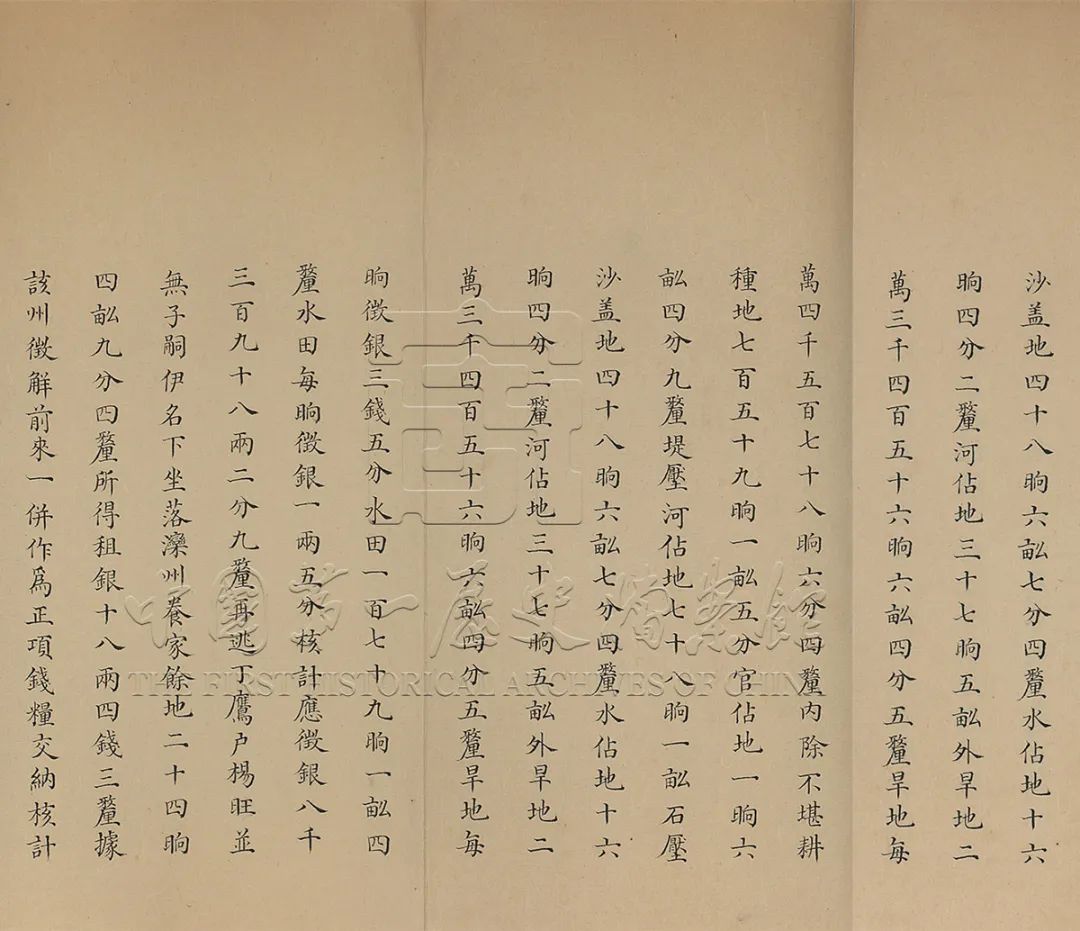 沙盖地四十八晌六畝七分四釐水佔地十六
晌四分二釐河佔地三十七晌五畝外旱地二
萬三千四百五十六晌六畝四分五釐旱地每
萬四千五百七十八晌六分四釐內除不堪耕
種地七百五十九晌一畝五分官佔地一晌六
畝四分九釐堤壓河佔地七十八晌一畝石壓
沙盖地四十八晌六畝七分四釐水佔地十六
晌四分二釐河佔地三十七晌五畝外旱地二
萬三千四百五十六晌六畝四分五釐旱地每
晌徵銀三錢五分水田一百七十九晌一畝四
釐水田每晌徵銀一兩五分核計應徵銀八千
三百九十八兩二分九釐再逃丁鷹户楊旺並
無子嗣伊名下坐落灤州養家餘地二十四晌
四畝九分四釐所得租銀十八兩四錢三釐據
該州徵解前來一併作為正項錢糧交納核計
中國第一歷史檔案館
THE FIRST HISTORICAL ARCHIVES OF CHINA